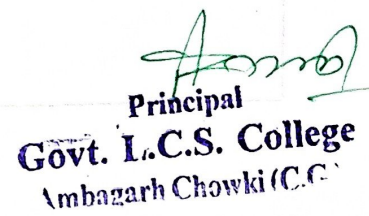 Principal
Govt. L.C.S. College
Ambagarh Chowki (C.G.)